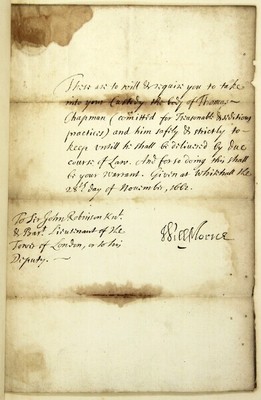 These are to will & require you to take
into your Custody the body of Thomas
Chapman (comitted for Treasonable & seditious
practices) and him safely & strictly to
keep untill he shall be delivered by due
course of Law. And for so doing this shall
be your warrant. Given at Whitehall the
28th day of November, 1662.
To Sr. John Robinson Knt.
& Bart. Lieutenant of the
Tower of London, or to his
Deputy.
Will Morice